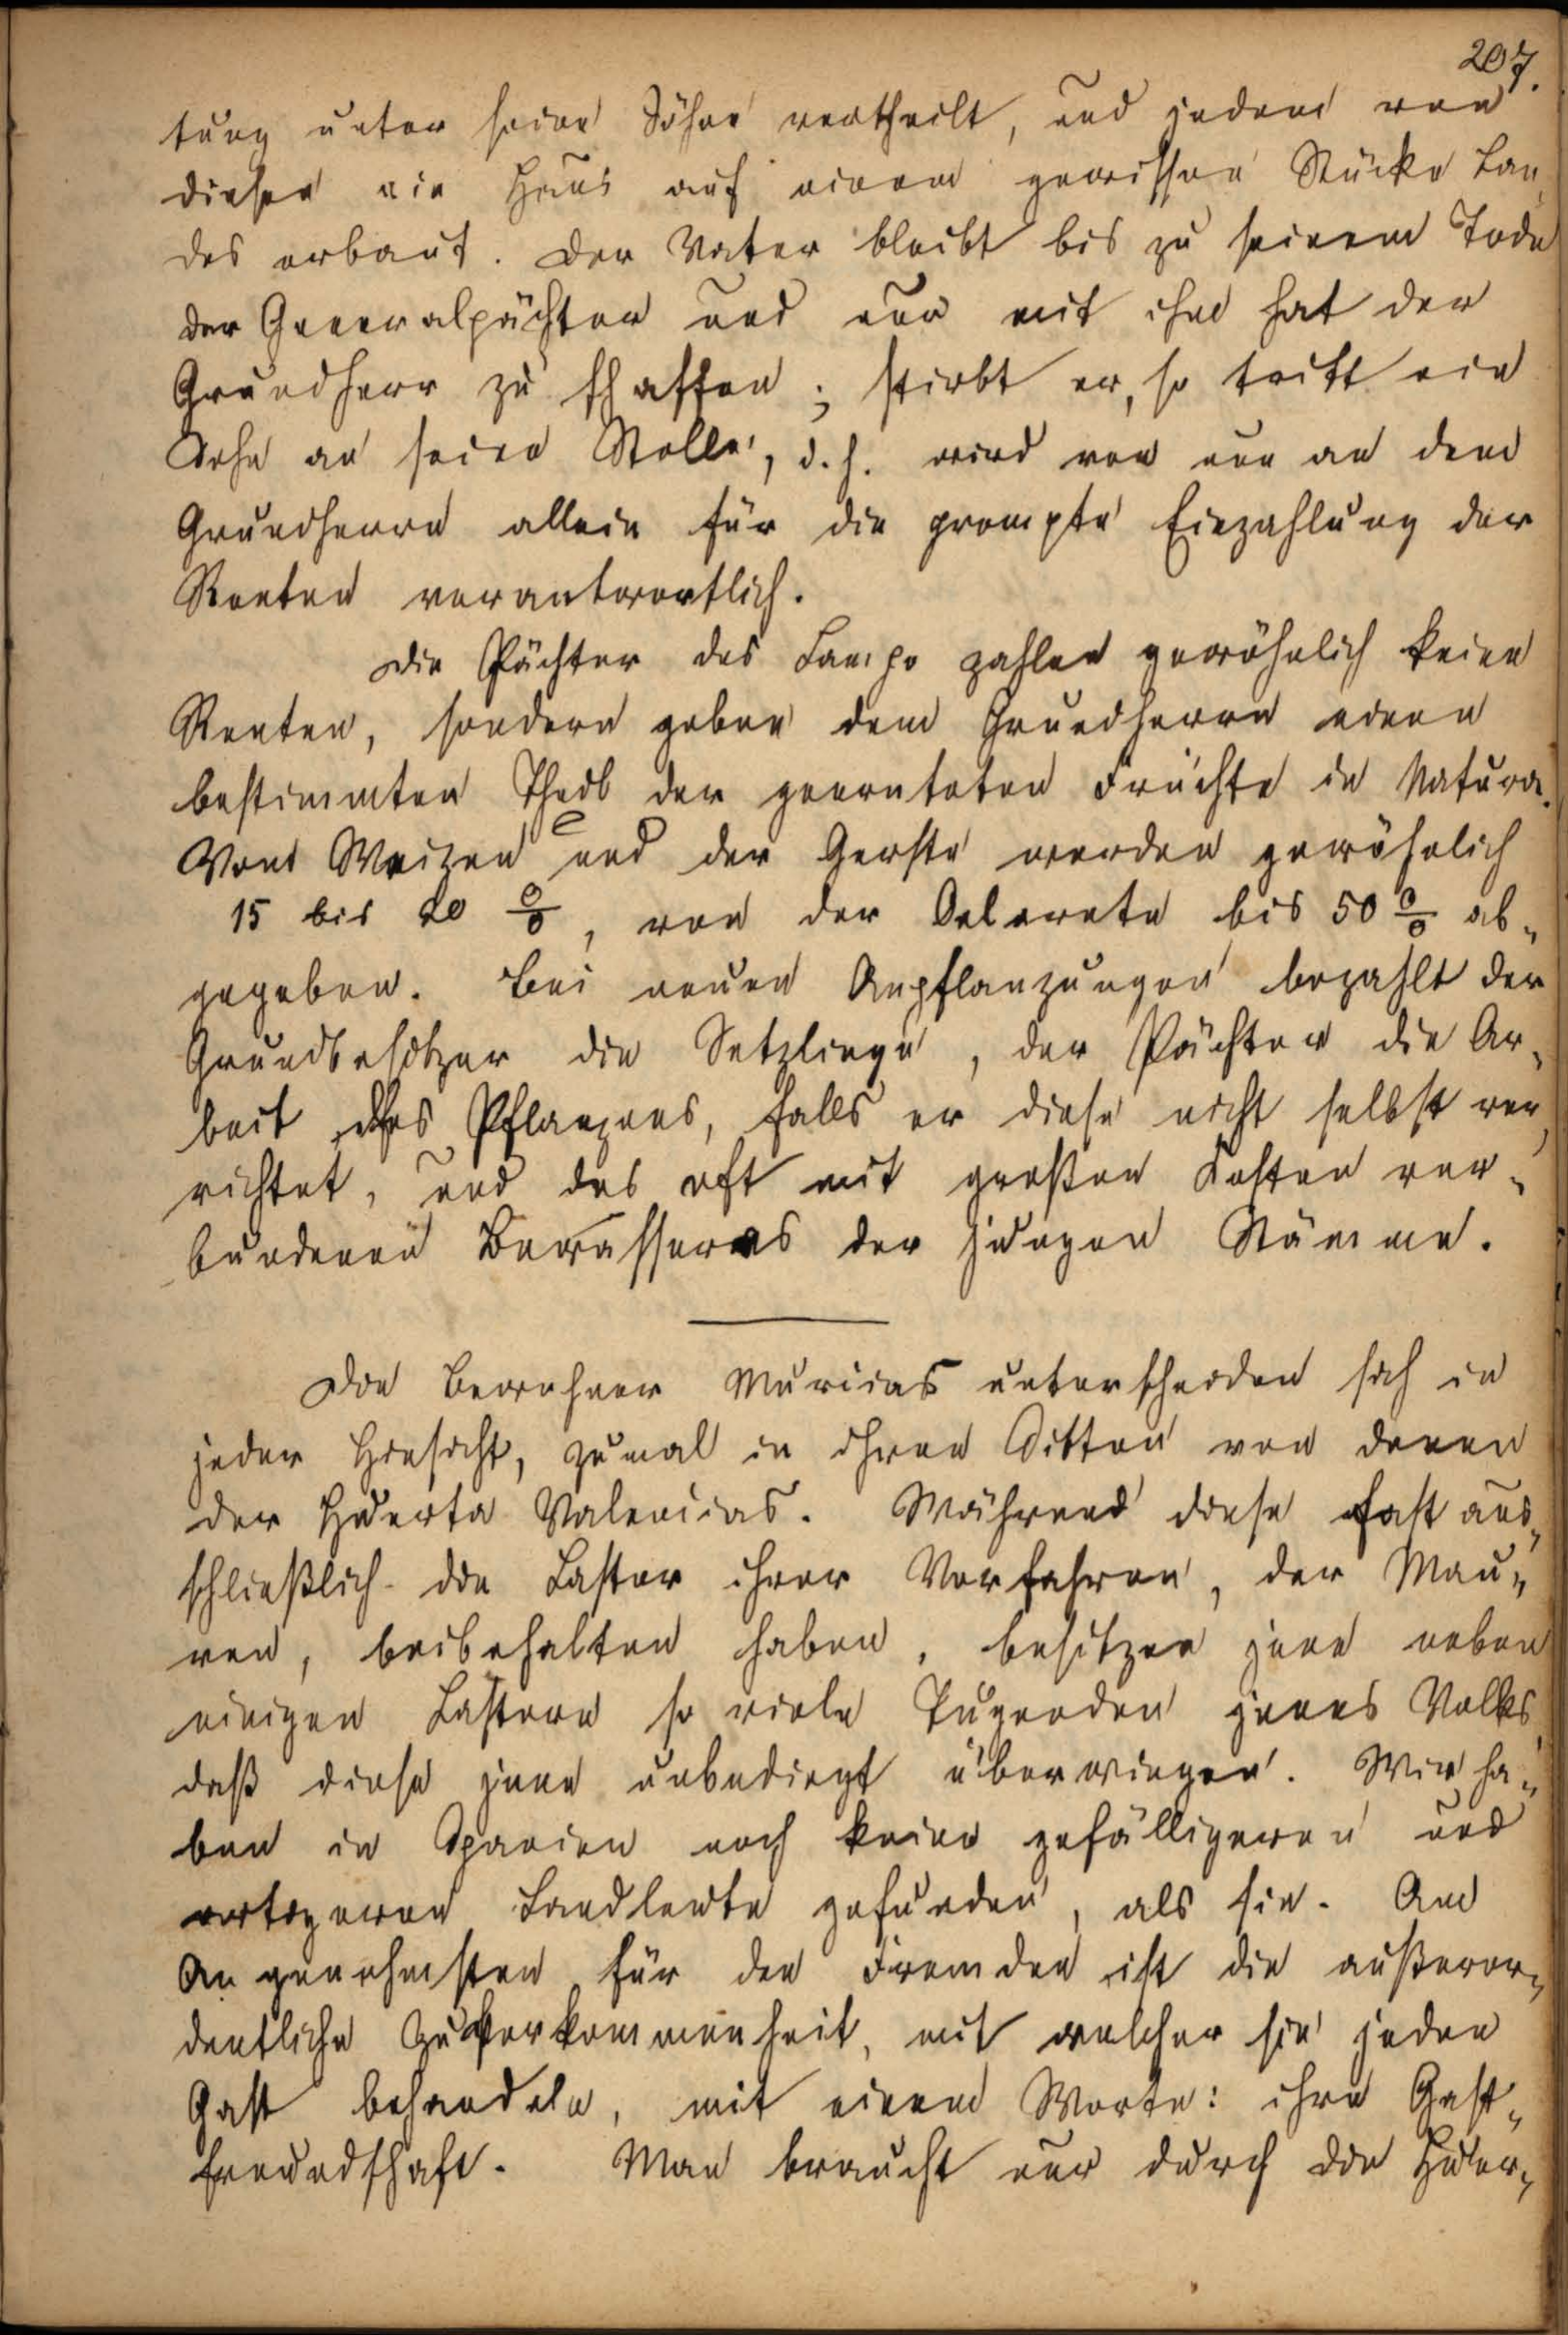 207.
tung unter seine Söhne vertheilt, und jedem von
diesen ein Haus auf einem gewissen Stücke Lan„
des erbaut. Der Vater bleibt bis zu seinem Tode
der Generalpächter und nur mit ihm hat der
Grundherr zu schaffen; stirbt er, so tritt ein
Sohn an seine Stelle, d.h. wird von nun an dem
Grundherrn allein für die prompte Einzahlung der
Renten verantwortlich.
Die Pächter des Campo zahlen gewöhnlich keine
Renten, sondern geben dem Grundherrn einen
bestimmten Theil der geernteten Früchte in Natura.
Vom Weizen und der Gerste werden gewöhnlich
15 bis 20 %, von der Oelernte bis 50 % ab„
gegeben. Bei neuen Anpflanzungen bezahlt der
Grundbesitzer die Setzlinge, der Pächter die Ar„
beit des Pflanzens, falls er diese nicht selbst ver„
richtet, und das oft mit großen Kosten ver„
bundenen Bewässerns der jungen Stämme.
Die Bewohner Murcias unterscheiden sich in
jeder Hinsicht, zumal in ihren Sitten von denen
der Huerta Valencias. Während diese fast aus„
schließlich die Laster ihrer Vorfahren, der Mau„
ren, beibehalten haben, besitzen jene neben
einigen Lastern so viele Tugenden jenes Volks,
daß diese jene unbedingt überwiegen. Wir ha„
ben in Spanien noch keine gefälligeren und
artigeren Landleute gefunden, als sie. Am
Angenehmsten für den Fremden ist die außeror„
dentliche Zuvorkommenheit, mit welcher sie jeden
Gast behandeln, mit einem Worte: ihre Gast„
freundschaft. Man braucht nur durch die Huer„